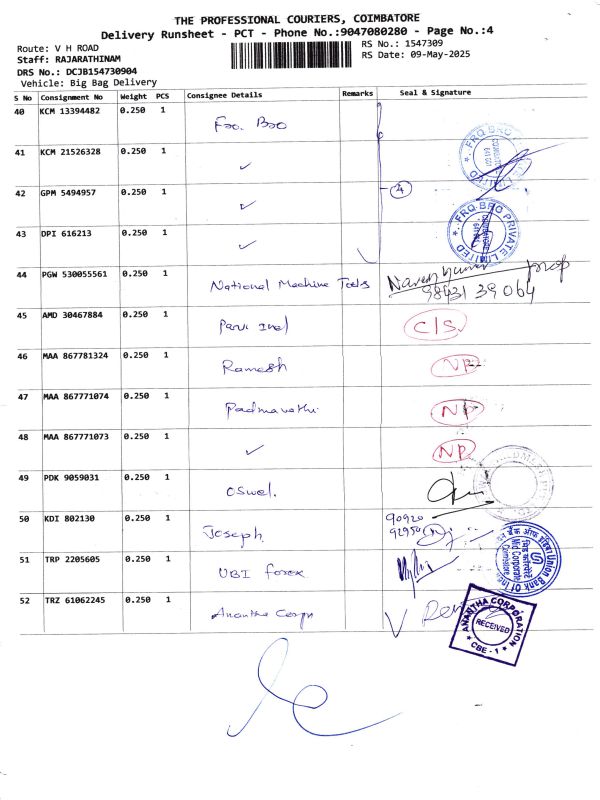 THE PROFESSIONAL COURIERS, COIMBATORE
Delivery Runsheet - PCT - Phone No.:9047080280 - Page No.:4
Route: V H ROAD
RS No.: 1547309
Staff: RAJARATHINAM
RS Date: 09-May-2025
DRS No.: DCJB154730904
Vehicle: Big Bag Delivery
S No Consignment No Weight PCS Consignee Details Remarks Seal & Signature
40 KCM 13394482 0.250 1
41 KCM 21526328 0.250 1 ✓
42 GPM 5494957 0.250 1 ✓ 4
43 DPI 616213 0.250 1 ✓
FRQ BRO PRIVATE LIMITED
44 PGW 530055561 0.250 1 National Machine Tools
98431 39064
45 AMD 30467884 0.250 1 C/S
46 MAA 867781324 0.250 1 Ramesh
47 MAA 867771074 0.250 1 Padmavathi NP
48 MAA 867771073 0.250 1 ✓ NP
49 PDK 9059031 0.250 1 Oswal
50 KDI 802130 0.250 1 Joseph 90920
92950
51 TRP 2205605 0.250 1 UBI forex
Union Bank of India
Mid Corporate
Coimbatore
52 TRZ 61062245 0.250 1 Anantha Corpn
ANANTHA CORPORATION
RECEIVED
CBE - 1